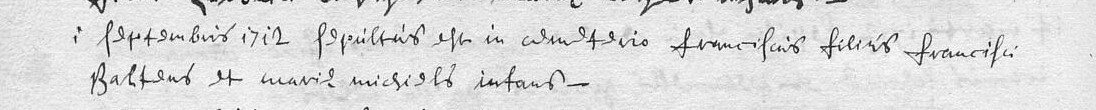 1 septembris 1712 sepultus est in cemeterio franciscus filius francisci
Baltens et mariæ michiels infans —